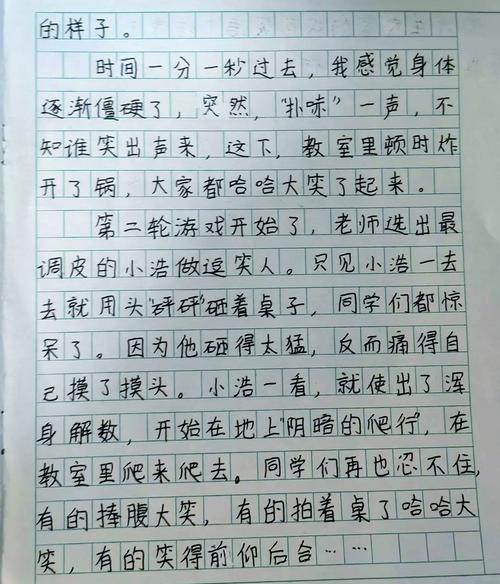 的样子。
时间一分一秒过去，我感觉身体
逐渐僵硬了，突然，“扑味”一声，不
知谁笑出声来，这下，教室里顿时炸
开了锅，大家都哈哈大笑了起来。
第二轮游戏开始了，老师选出最
调皮的小浩做逗笑人。只见小浩一去
去就用头“砰砰”砸着桌子，同学们都惊
呆了。因为他砸得太猛，反而痛得自
己摸了摸头。小浩一看，就使出了浑
身解数，开始在地上“阴暗的爬行”，在
教室里爬来爬去。同学们再也忍不住，
有的捧腹大笑，有的拍着桌了哈哈大
笑，有的笑得前仰后合……